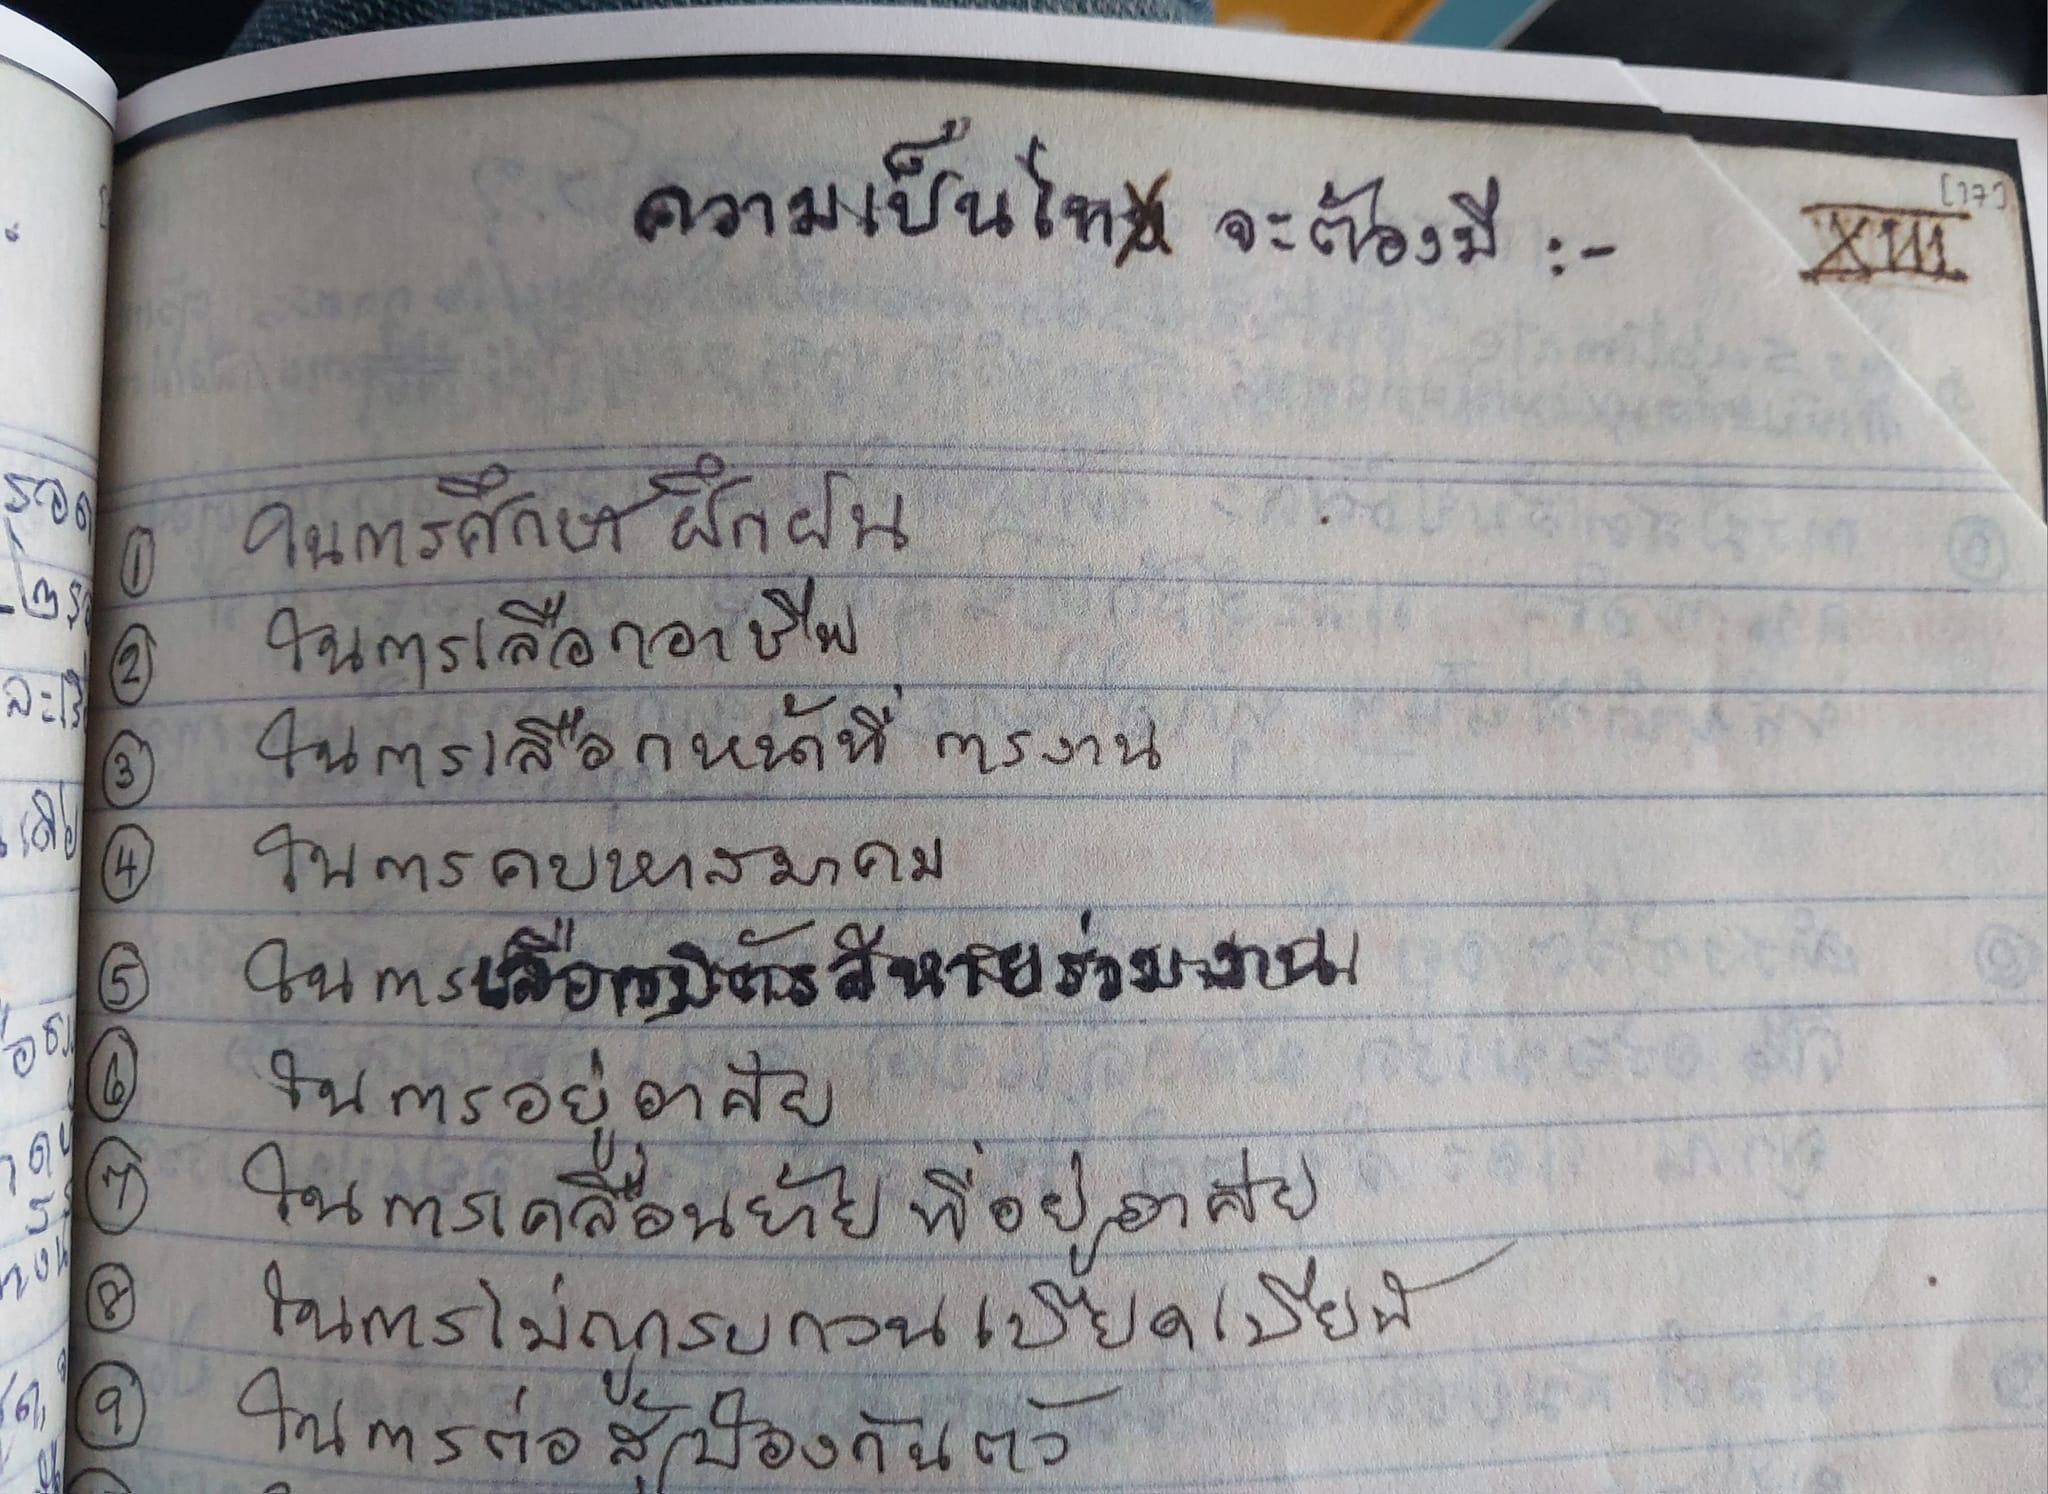 ความเป็นไท จะต้องมี :-
[17]
XIII
① ในการศึกษา ฝึกฝน
② ในการเลือกอาชีพ
③ ในการเลือกหน้าที่ การงาน
④ ในการคบหาสมาคม
⑤ ในการเลือกมิตรสหายร่วมงาน
⑥ ในการอยู่อาศัย
⑦ ในการเคลื่อนย้าย ที่อยู่อาศัย
⑧ ในการไม่ถูกรบกวนเบียดเบียฬ
⑨ ในการต่อสู้ป้องกันตัว